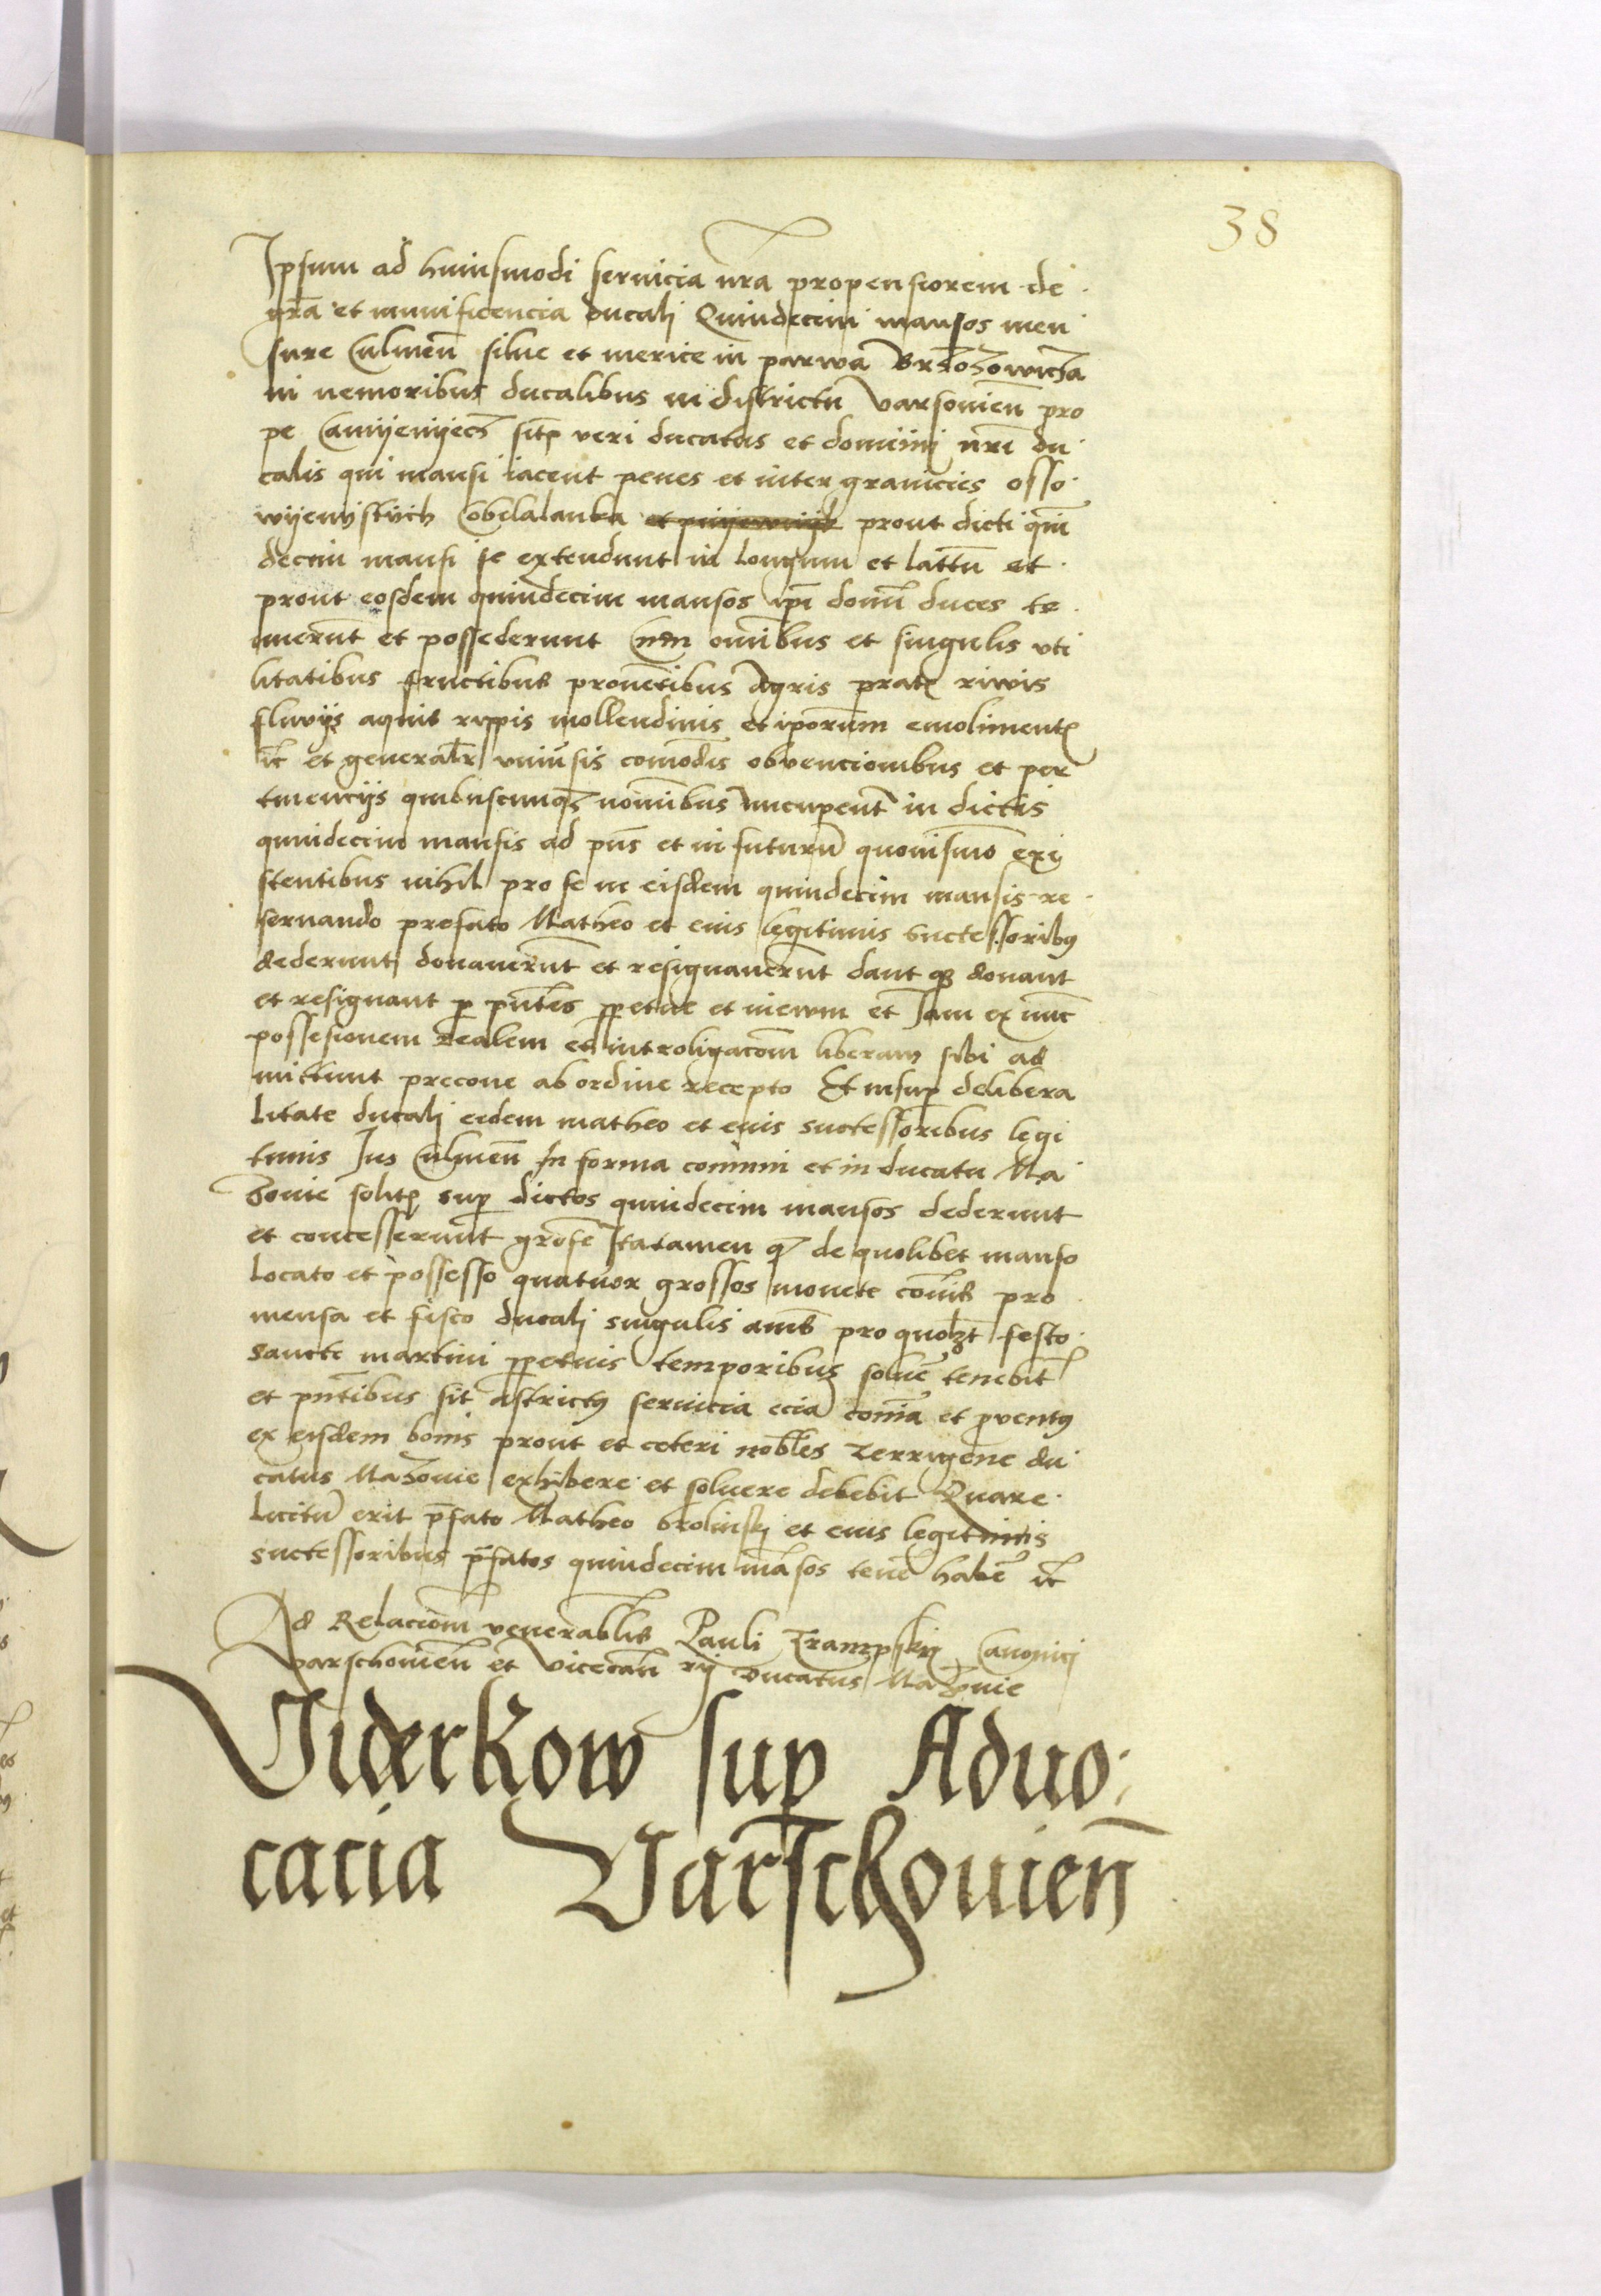 38
Ipsum ad huiusmodi seruicia nra propensiorem de
gra et munificencia ducali Quindecim mansos men
sure Culmen silue et merice in parwa Brzozowicza
in nemoribus ducalibus in districtu Varsouien pro
pe Camyenyecz sitos veri ducatus et dominij nri du
calis qui mansi iacent penes et inter granicies osso
wyenystych Cobelalanka prout dicti quin
decim mansi se extendunt in longum et latum et
prout eosdem quindecim mansos ipi domi duces te
nuerunt et possederunt Cum omibus et singulis vti
litatibus fructibus prouetibus Agris prats riwis
fluvijs aquis rippis mollendinis et iporum emoliments
itc et generalr vniusis comodis obuencionibus et per
tinencijs quibuscunqz nomibus nucupent in dictis
quindecim mansis ad pns et in futuru quouismo exi
stentibus nihil pro se in eisdem quindecim mansis re
seruando prefato Matheo et eius legitimis Successoribus
dederunt donauerunt et resignauerunt dant qz donant
et resignant p pntes ppetue et in ewm et Iam ex nuc
possesionem Realem et introligacom liberam sibi ad
mittunt precone ab ordine recepto Et insup de libera
litate ducali eidem matheo et eius successoribus legi
timis Ius Culmen In forma comuni et in ducatu Ma
zouie solits sup dictos quindecim mansos dederunt
et concesserunt grose Ita tamen q de quolibet manso
locato et possesso quatuor grossos monete comis pro
mensa et fisco ducali singulis annis pro quolzt festo
sancti martini ppetuis temporibus soluere tenebit
et pntibus sit astrictus seruicia ecia comia et prouentus
ex eisdem bonis prout et ceteri nobles Terrigene du
catus Mazouie exhibere et soluere debebit Quare
licitu erit pfato Matheo Brolinski et eius legitimis
successoribus pfatos quindecim masos tene habe itc
Ad Relaciom venerablis Pauli Trampskij Canonici
Varschouien et vicecan rij Ducatus Mazouie
Viderkow sup Aduo
cacia Varschouien